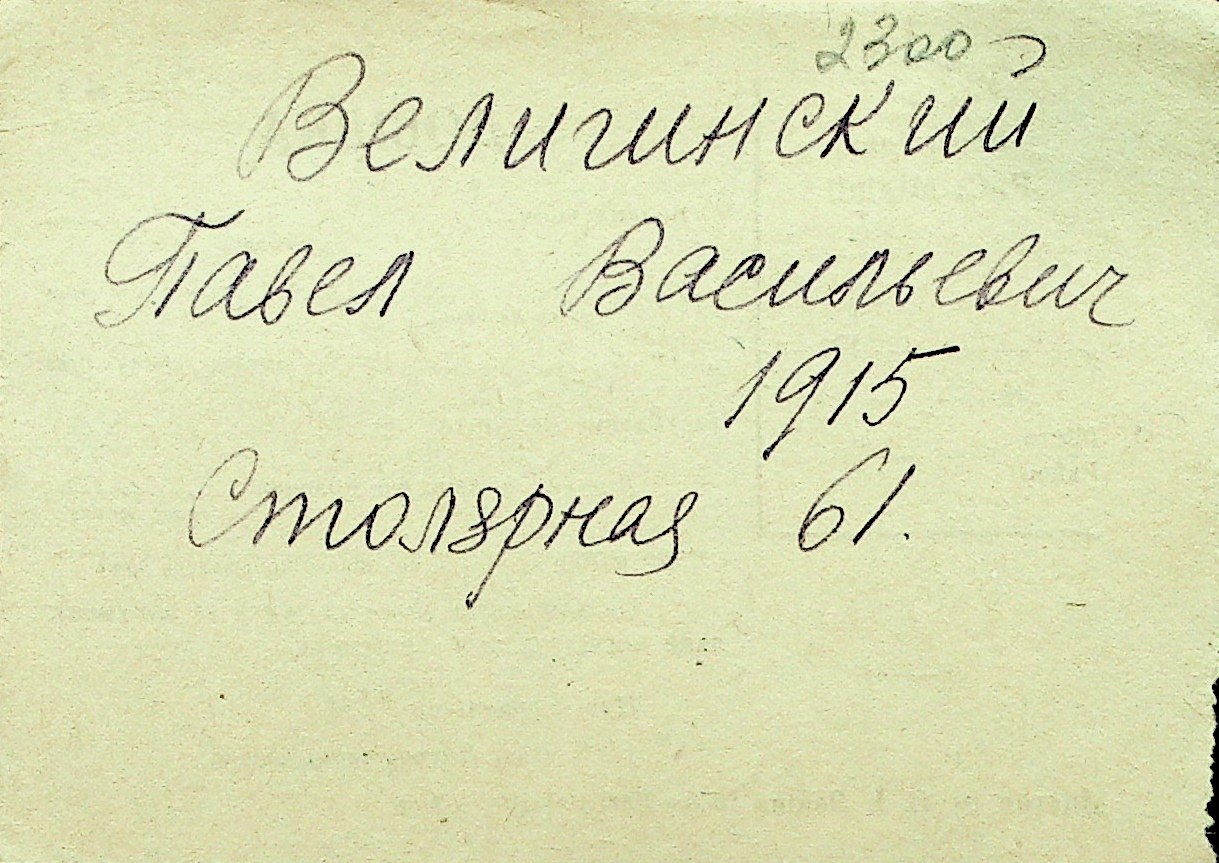 2300
Велигинский
Павел Васильевич
1915
Столярная 61.